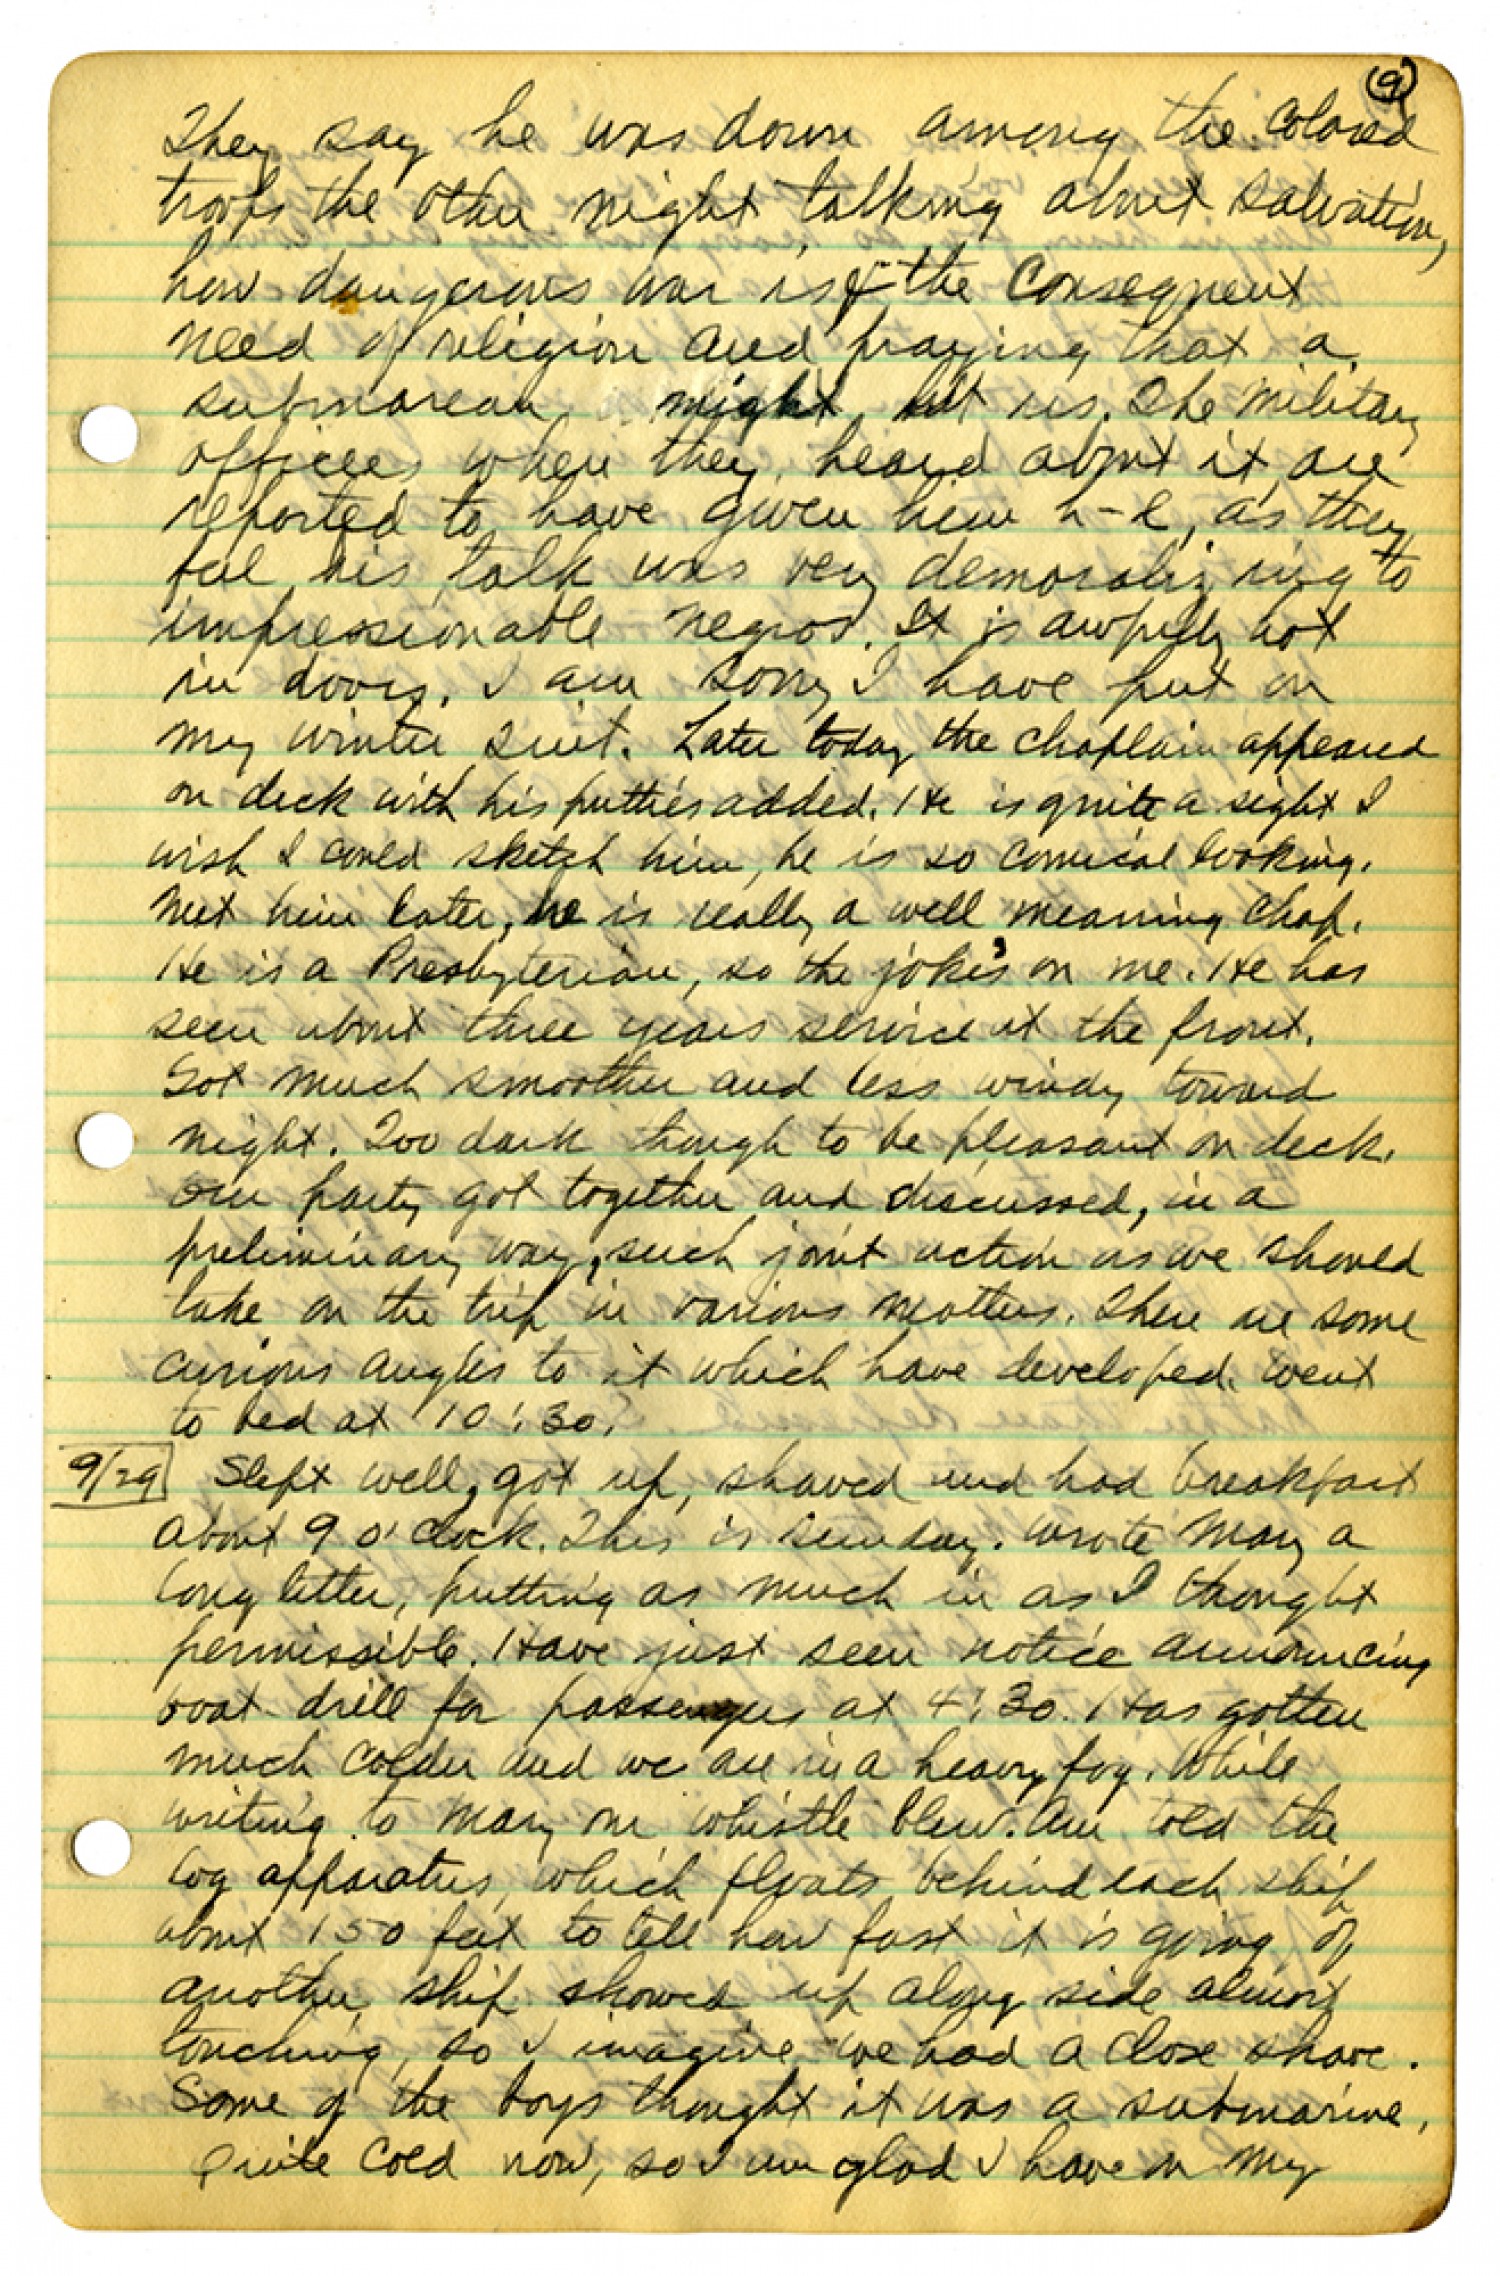 (9)
They say he was down among the colored
troops the other night talking about salvation,
how dangerous war is & the consequent
need of religion and praying that a
submarean might hit us. The military
officers when they heard about it are
reported to have given him h-l, as they
feel his talk was very demoralizing to
impressionable negros. It is awfully hot
in doors. I am sorry I have put on
my winter suit. Later today the chaplain appeared
on deck with his putties added. He is quite a sight I
wish I could sketch him, he is so comical looking.
Met him later, he is really a well meaning chap.
He is a Presbyterian, so the joke's on me. He has
seen about three years service at the front.
Got much smoother and less windy toward
night. Too dark though to be pleasant on deck.
Our party got together and discussed, in a
preliminary way, such joint action as we should
take on the trip in various matters. There are some
curious angles to it which have developed. Went
to bed at 10:30.
9/29 Slept well, got up, shaved and had breakfast
about 9 o'clock. This is Sunday. Wrote Mary a
long letter, putting as much in as I thought
permissible. Have just seen notice announcing
boat drill for passengers at 4:30. Has gotten
much colder and we are in a heavy fog. While
writing to Mary our whistle blew. Am told the
log apparatus, which floats behind each ship
about 150 feet to tell how fast it is going, of
another ship showed up along side almost
touching, so I imagine we had a close shave.
Some of the boys thought it was a submarine.
Quite cold now, so I am glad I have on my